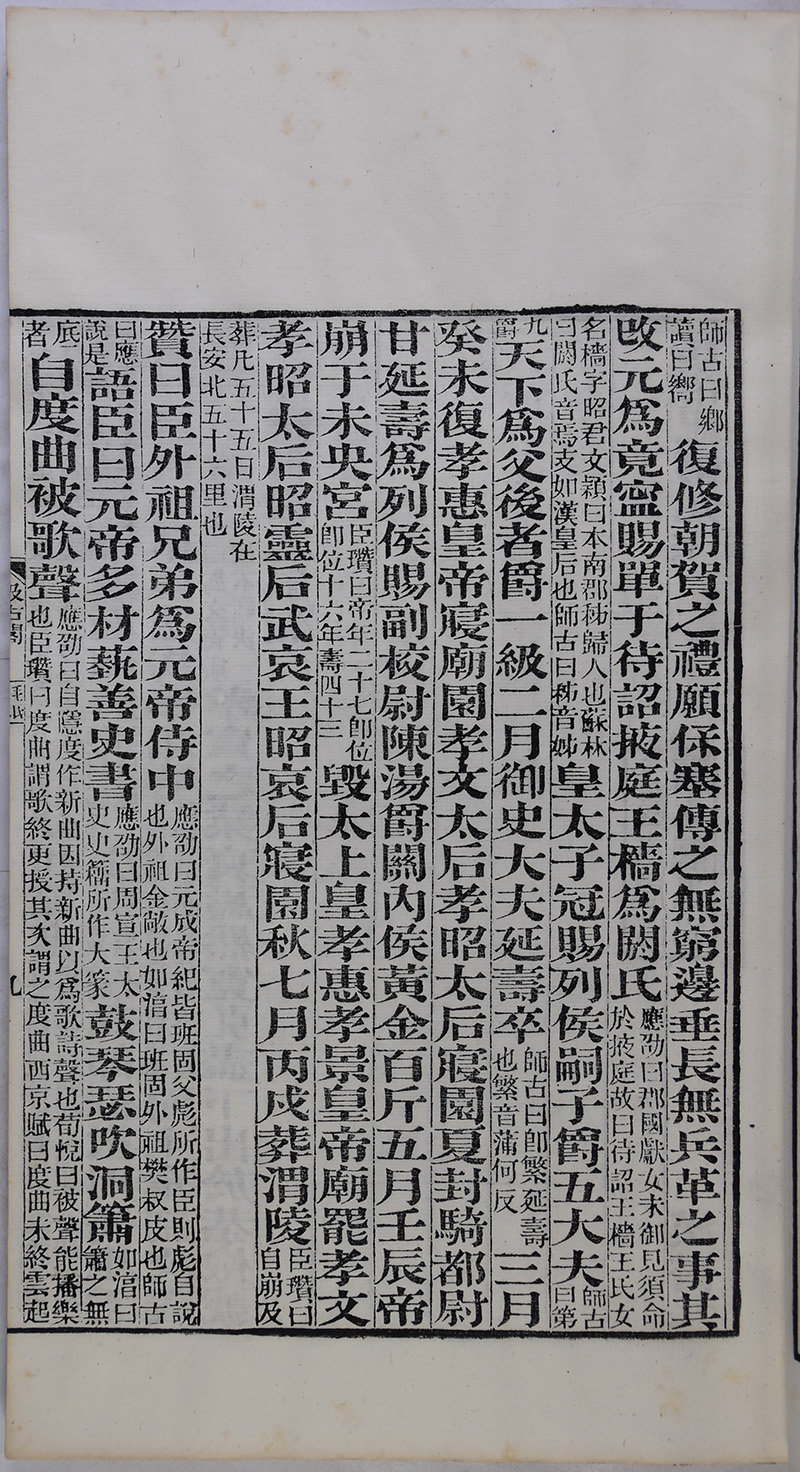 師古曰鄉讀曰嚮復修朝賀之禮願保塞傳之無窮邊垂長無兵革之事其
改元爲竟寧賜單于待詔掖庭王檣爲閼氏應劭曰郡國獻女未御見須命於掖庭故曰待詔王檣王氏女
名檣字昭君文穎曰本南郡秭歸人也蘇林曰閼氏音焉支如漢皇后也師古曰秭音姊皇太子冠賜列侯嗣子爵五大夫師古曰第
九爵天下爲父後者爵一級二月御史大夫延壽卒師古曰卽繁延壽也繁音蒲何反三月
癸未復孝惠皇帝寢廟園孝文太后孝昭太后寢園夏封騎都尉
甘延壽爲列侯賜副校尉陳湯爵關內侯黃金百斤五月壬辰帝
崩于未央宮臣瓚曰帝年二十七卽位卽位十六年壽四十三毀太上皇孝惠孝景皇帝廟罷孝文
孝昭太后昭靈后武哀王昭哀后寢園秋七月丙戌葬渭陵臣瓚曰自崩及
葬凡五十五日渭陵在長安北五十六里也
贊曰臣外祖兄弟爲元帝侍中應劭曰元成帝紀皆班固父彪所作臣則彪自說也外祖金敞也如淳曰班固外祖樊叔皮也師古
曰應說是語臣曰元帝多材藝善史書應劭曰周宣王太史史籒所作大篆鼓琴瑟吹洞簫如淳曰簫之無
底者自度曲被歌聲應劭曰自隱度作新曲因持新曲以爲歌詩聲也荀悅曰被聲能播樂也臣瓚曰度曲謂歌終更授其次謂之度曲西京賦曰度曲未終雲起
九